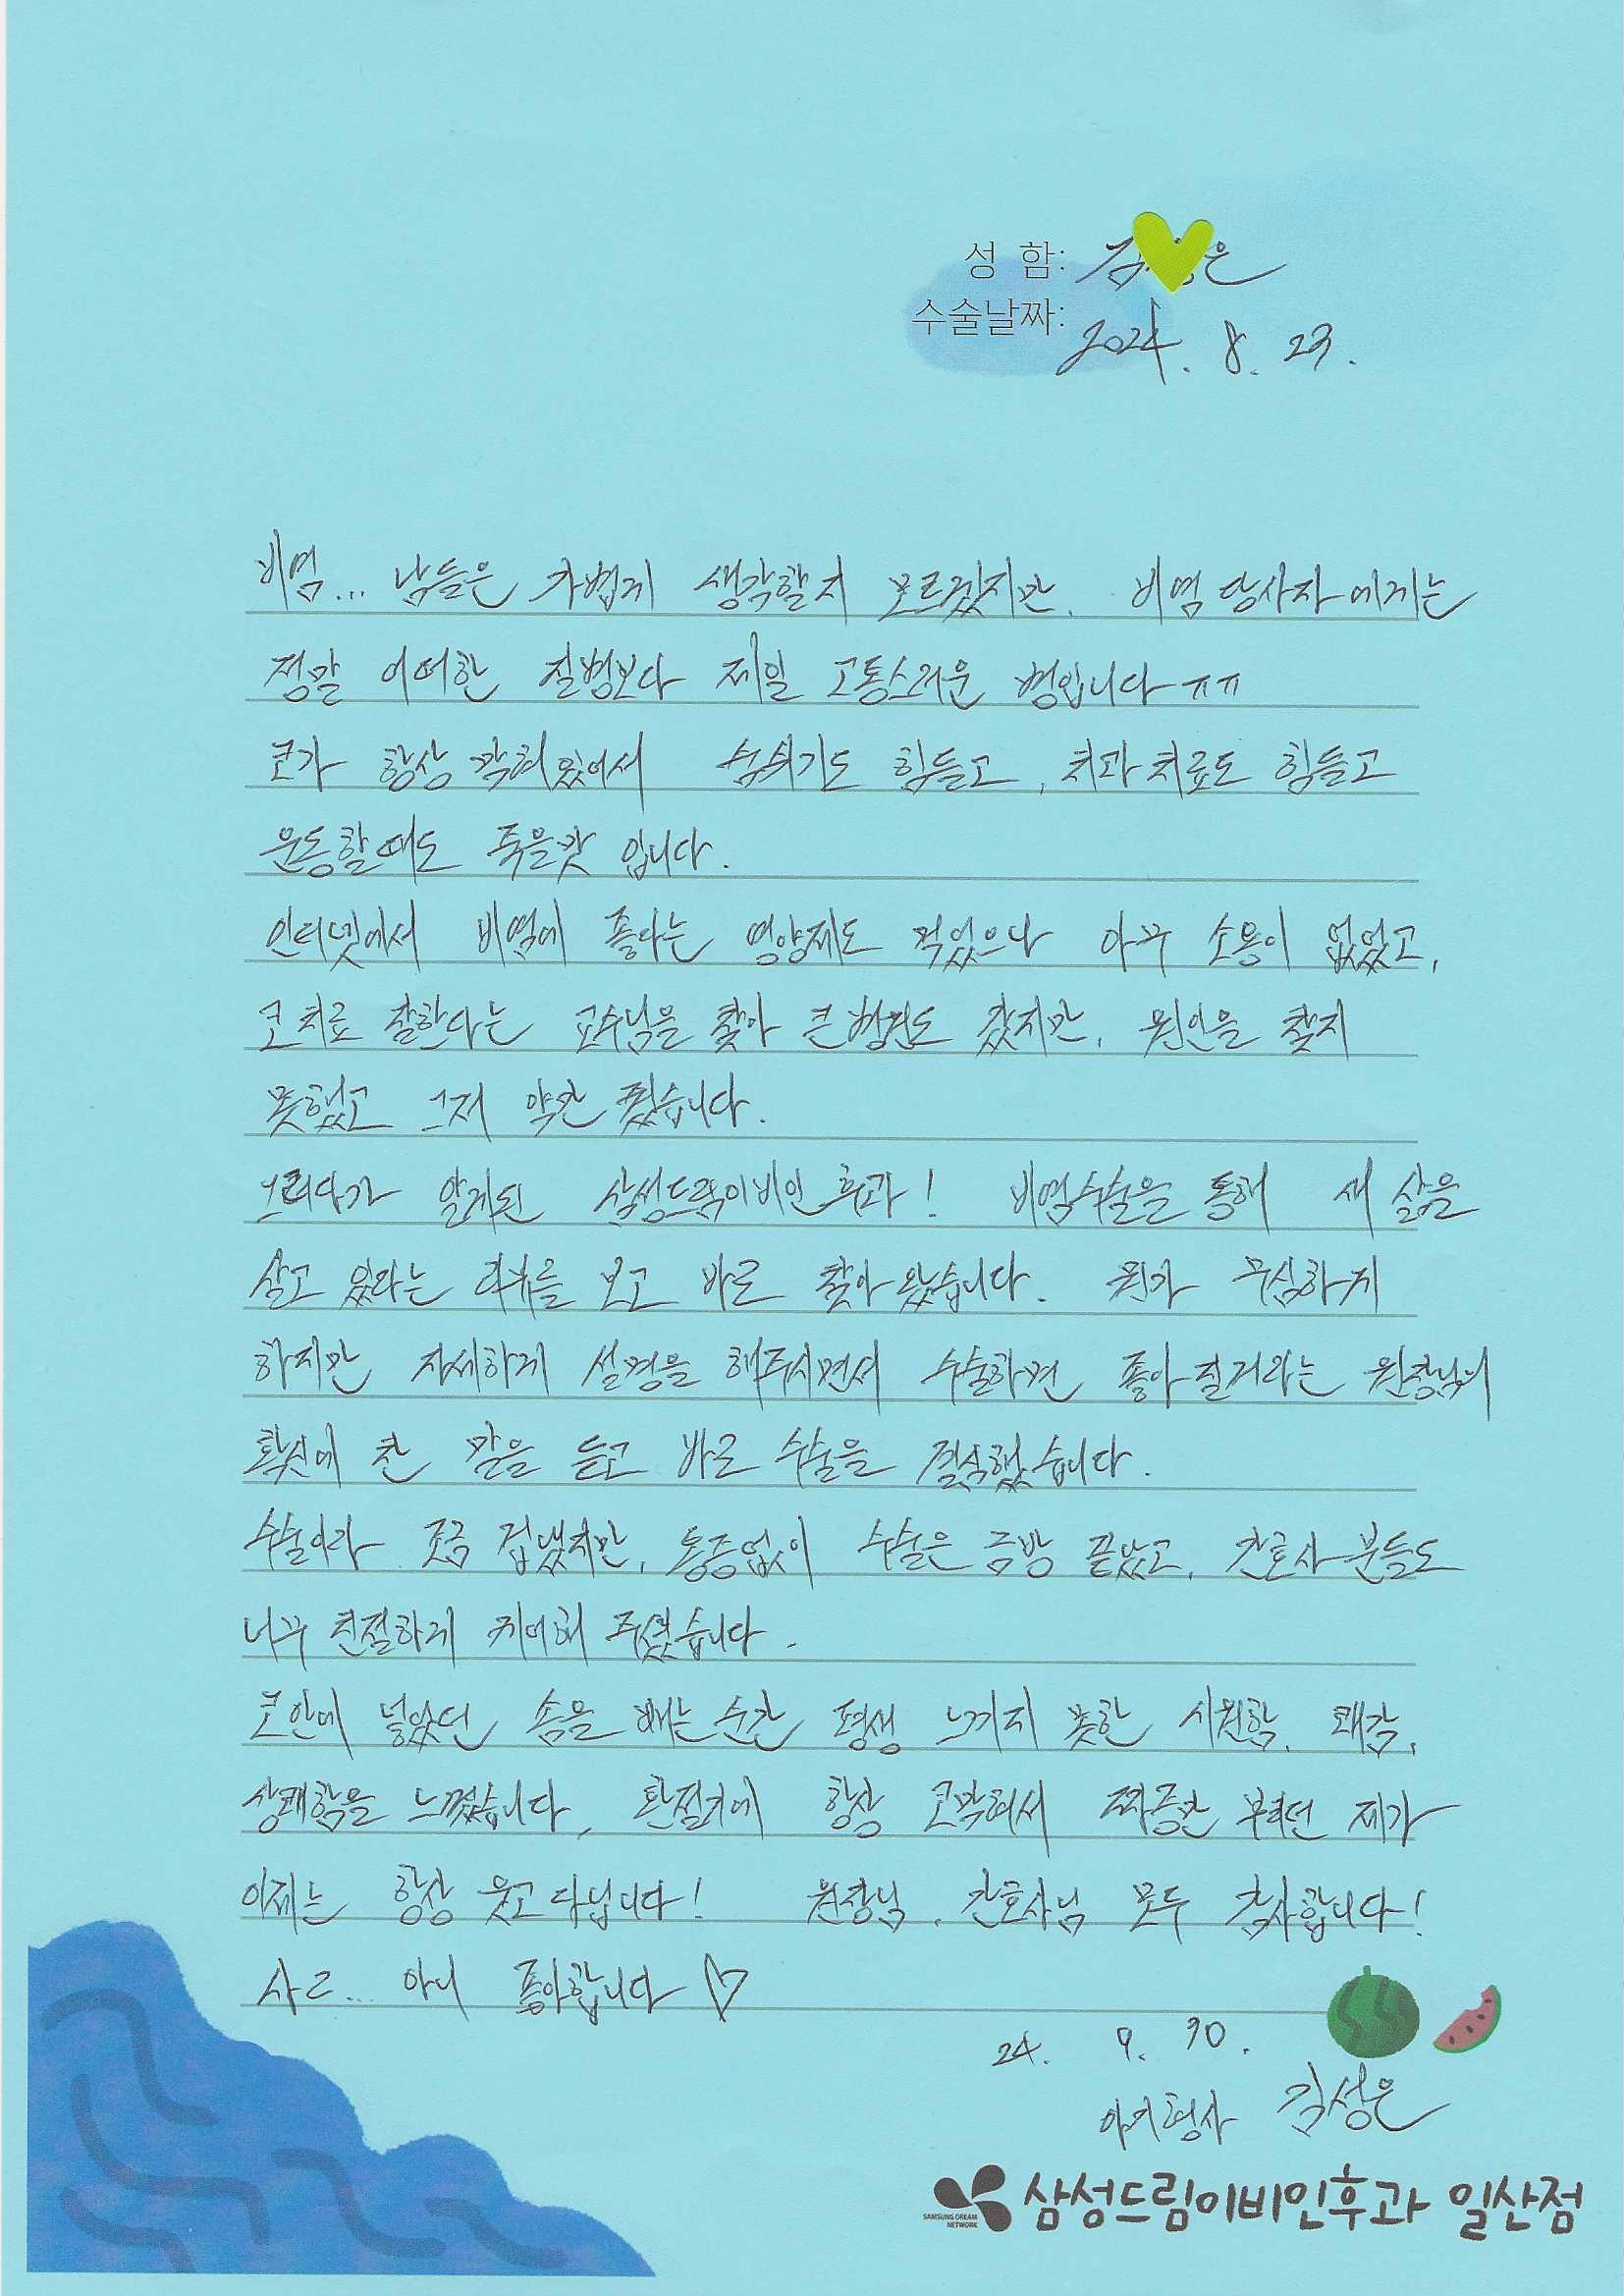 성 함: 김 은
수술날짜: 2024. 8. 23.
비염... 남들은 가볍게 생각할지 모르겠지만, 비염 당사자에게는
정말 어떠한 질병보다 제일 고통스러운 병입니다 ㅠㅠ
코가 항상 막혀있어서 숨쉬기도 힘들고, 치과치료도 힘들고
운동할때도 죽을맛 입니다.
인터넷에서 비염에 좋다는 영양제도 먹었으나 아무 소용이 없었고,
코치료 잘한다는 교수님을 찾아 큰병원도 갔지만, 원인을 찾지
못했고 그저 약만 줬습니다.
그러다가 알게된 삼성드림이비인후과! 비염수술을 통해 새 삶을
살고 있다는 리뷰를 보고 바로 찾아왔습니다. 뭔가 무심하게
하지만 자세하게 설명을 해주시면서 수술하면 좋아질거라는 원장님의
확신에 찬 말을 듣고 바로 수술을 결심했습니다.
수술이라 조금 겁냈지만, 통증없이 수술은 금방 끝났고, 간호사분들도
너무 친절하게 케어해 주셨습니다.
코안에 넣었던 솜을 빼는 순간 평생 느끼지 못한 시원함, 쾌감,
상쾌함을 느꼈습니다. 환절기에 항상 코막혀서 짜증만 부리던 제가
이제는 항상 웃고 다닙니다! 원장님, 간호사님 모두 감사합니다!
사르... 아니 좋아합니다 ♡
24. 9. 30.
아기천사 김성은
SAMSUNG DREAM NETWORK
삼성드림이비인후과 일산점